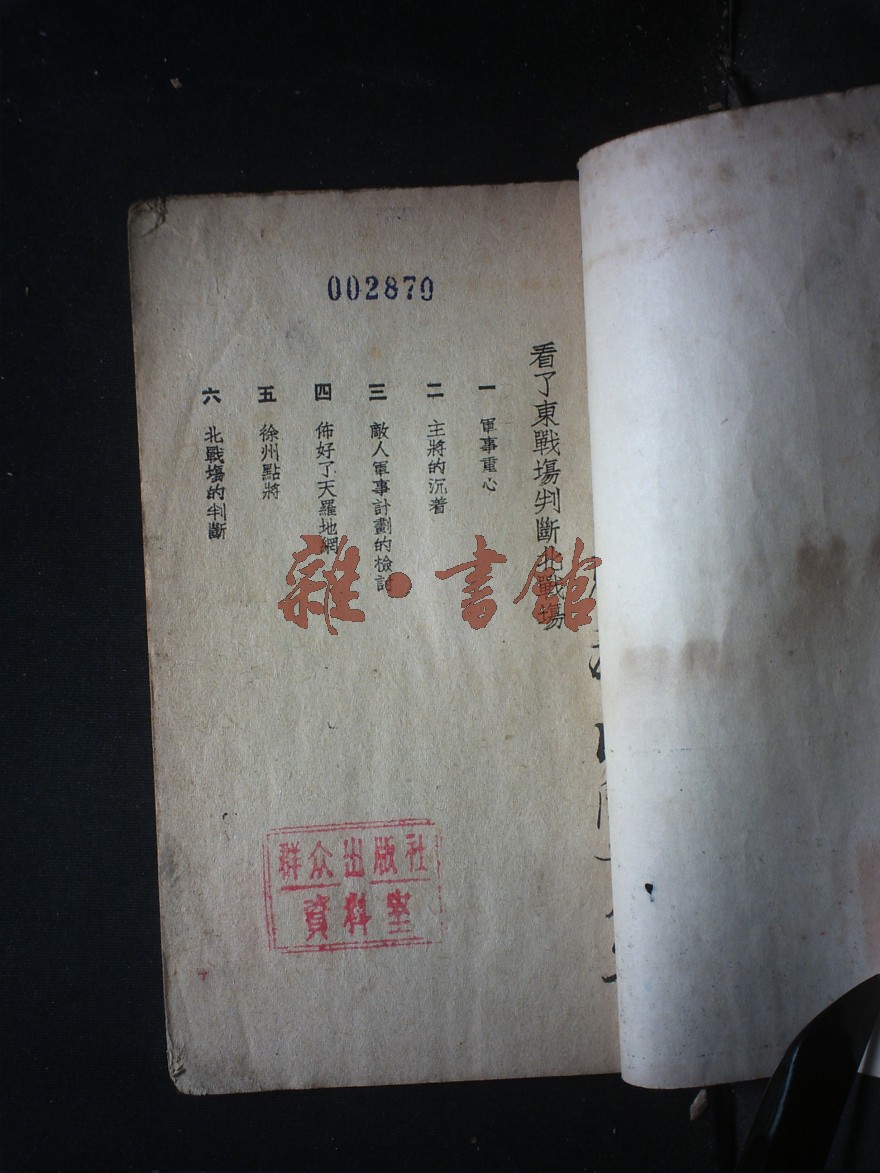 002879
看了東戰場判斷北戰場
一 軍事重心
二 主將的沉着
三 敵人軍事計劃的檢討
四 佈好了天羅地網
五 徐州點將
六 北戰場的判斷
雜·書館
群众出版社
資料室